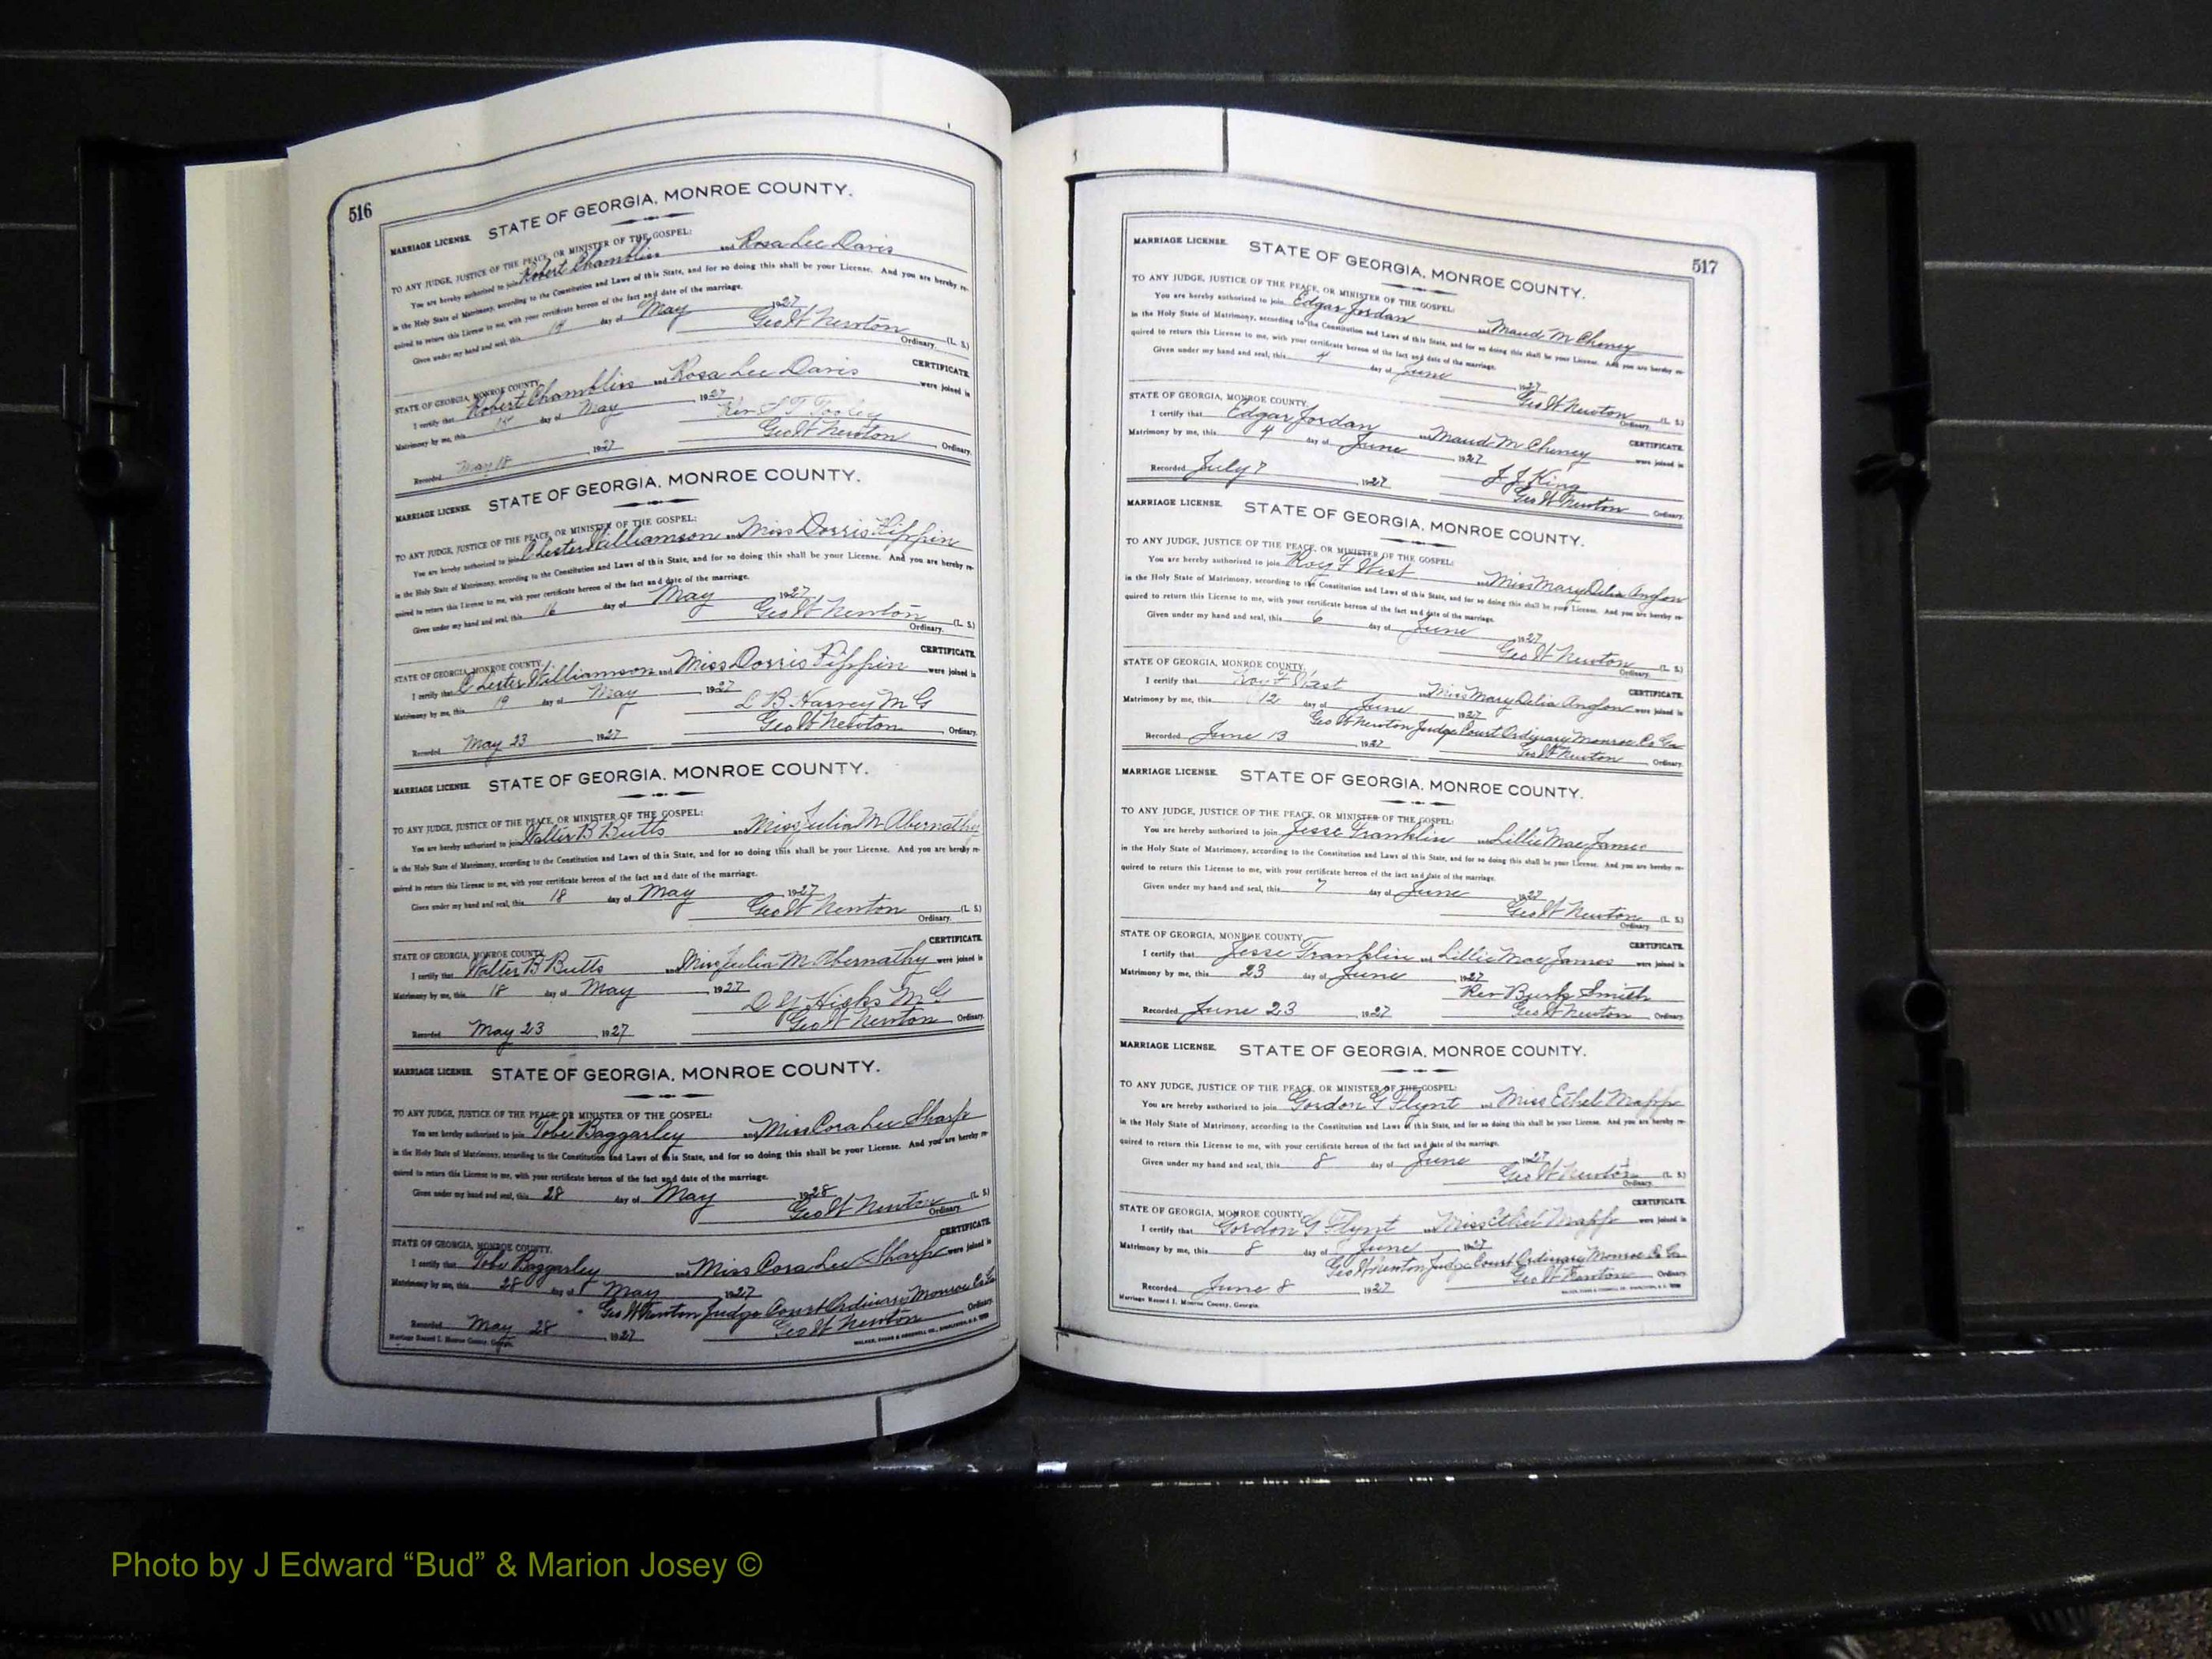 516
MARRIAGE LICENSE. STATE OF GEORGIA, MONROE COUNTY.
TO ANY JUDGE, JUSTICE OF THE PEACE, OR MINISTER OF THE GOSPEL:
You are hereby authorized to join Robert Chambliss and Rosa Lee Davis
in the Holy State of Matrimony, according to the Constitution and Laws of this State, and for so doing this shall be your License. And you are hereby re-
quired to return this License to me, with your certificate hereon of the fact and date of the marriage.
Given under my hand and seal, this 14 day of May 1927
Geo W Newton (L. S.)
Ordinary.
CERTIFICATE
STATE OF GEORGIA, MONROE COUNTY.
I certify that Robert Chambliss and Rosa Lee Davis were joined in
Matrimony by me, this 14 day of May 1927
Rev S T Tooley
Recorded May 18 1927 Geo W Newton Ordinary.
MARRIAGE LICENSE. STATE OF GEORGIA, MONROE COUNTY.
TO ANY JUDGE, JUSTICE OF THE PEACE, OR MINISTER OF THE GOSPEL:
You are hereby authorized to join Chester Williamson and Miss Dorris Pippin
in the Holy State of Matrimony, according to the Constitution and Laws of this State, and for so doing this shall be your License. And you are hereby re-
quired to return this License to me, with your certificate hereon of the fact and date of the marriage.
Given under my hand and seal, this 16 day of May 1927
Geo W Newton (L. S.)
Ordinary.
CERTIFICATE
STATE OF GEORGIA, MONROE COUNTY.
I certify that Chester Williamson and Miss Dorris Pippin were joined in
Matrimony by me, this 19 day of May 1927
L B Harvey M G
Recorded May 23 1927 Geo W Newton Ordinary.
MARRIAGE LICENSE. STATE OF GEORGIA, MONROE COUNTY.
TO ANY JUDGE, JUSTICE OF THE PEACE, OR MINISTER OF THE GOSPEL:
You are hereby authorized to join Walter B Butts and Miss Julia M Abernathy
in the Holy State of Matrimony, according to the Constitution and Laws of this State, and for so doing this shall be your License. And you are hereby re-
quired to return this License to me, with your certificate hereon of the fact and date of the marriage.
Given under my hand and seal, this 18 day of May 1927
Geo W Newton (L. S.)
Ordinary.
CERTIFICATE
STATE OF GEORGIA, MONROE COUNTY.
I certify that Walter B Butts and Miss Julia M Abernathy were joined in
Matrimony by me, this 18 day of May 1927
Hicks M G
Recorded May 23 1927 Geo W Newton Ordinary.
MARRIAGE LICENSE. STATE OF GEORGIA, MONROE COUNTY.
TO ANY JUDGE, JUSTICE OF THE PEACE, OR MINISTER OF THE GOSPEL:
You are hereby authorized to join Tobe Baggarley and Miss Cora Lee Sharp
in the Holy State of Matrimony, according to the Constitution and Laws of this State, and for so doing this shall be your License. And you are hereby re-
quired to return this License to me, with your certificate hereon of the fact and date of the marriage.
Given under my hand and seal, this 28 day of May 1928
Geo W Newton (L. S.)
Ordinary.
CERTIFICATE
STATE OF GEORGIA, MONROE COUNTY.
I certify that Tobe Baggarley and Miss Cora Lee Sharpe were joined in
Matrimony by me, this 28 day of May 1927
Geo W Newton Judge Court Ordinary Monroe Co Ga
Recorded May 28 1927 Geo W Newton Ordinary.
Marriage Record I. Monroe County, Georgia.
517
MARRIAGE LICENSE. STATE OF GEORGIA, MONROE COUNTY.
TO ANY JUDGE, JUSTICE OF THE PEACE, OR MINISTER OF THE GOSPEL:
You are hereby authorized to join Edgar Jordan and Maud McCheney
in the Holy State of Matrimony, according to the Constitution and Laws of this State, and for so doing this shall be your License. And you are hereby re-
quired to return this License to me, with your certificate hereon of the fact and date of the marriage.
Given under my hand and seal, this 4 day of June 1927
Geo W Newton (L. S.)
Ordinary.
STATE OF GEORGIA, MONROE COUNTY.
CERTIFICATE
I certify that Edgar Jordan and Maud McCheney were joined in
Matrimony by me, this 4 day of June 1927
J. J. King
Recorded July 7 1927 Geo W Newton Ordinary.
MARRIAGE LICENSE. STATE OF GEORGIA, MONROE COUNTY.
TO ANY JUDGE, JUSTICE OF THE PEACE, OR MINISTER OF THE GOSPEL:
You are hereby authorized to join Roy F West and Miss Mary Delia Anglon
in the Holy State of Matrimony, according to the Constitution and Laws of this State, and for so doing this shall be your License. And you are hereby re-
quired to return this License to me, with your certificate hereon of the fact and date of the marriage.
Given under my hand and seal, this 6 day of June 1927
Geo W Newton (L. S.)
Ordinary.
STATE OF GEORGIA, MONROE COUNTY.
CERTIFICATE
I certify that Roy F West and Miss Mary Delia Anglon were joined in
Matrimony by me, this 12 day of June 1927
Geo W Newton Judge Court Ordinary Monroe Co Ga
Recorded June 13 1927 Geo W Newton Ordinary.
MARRIAGE LICENSE. STATE OF GEORGIA, MONROE COUNTY.
TO ANY JUDGE, JUSTICE OF THE PEACE, OR MINISTER OF THE GOSPEL:
You are hereby authorized to join Jesse Franklin and Lillie Mae James
in the Holy State of Matrimony, according to the Constitution and Laws of this State, and for so doing this shall be your License. And you are hereby re-
quired to return this License to me, with your certificate hereon of the fact and date of the marriage.
Given under my hand and seal, this 7 day of June 1927
Geo W Newton (L. S.)
Ordinary.
STATE OF GEORGIA, MONROE COUNTY.
CERTIFICATE
I certify that Jesse Franklin and Lillie Mae James were joined in
Matrimony by me, this 23 day of June 1927
Rev Burk Smith
Recorded June 23 1927 Geo W Newton Ordinary.
MARRIAGE LICENSE. STATE OF GEORGIA, MONROE COUNTY.
TO ANY JUDGE, JUSTICE OF THE PEACE, OR MINISTER OF THE GOSPEL:
You are hereby authorized to join Gordon G Flynt and Miss Ethel Mapp
in the Holy State of Matrimony, according to the Constitution and Laws of this State, and for so doing this shall be your License. And you are hereby re-
quired to return this License to me, with your certificate hereon of the fact and date of the marriage.
Given under my hand and seal, this 8 day of June 1927
Geo W Newton (L. S.)
Ordinary.
CERTIFICATE
STATE OF GEORGIA, MONROE COUNTY.
I certify that Gordon G Flynt and Miss Ethel Mapp were joined in
Matrimony by me, this 8 day of June 1927
Geo W Newton Judge Court Ordinary Monroe Co Ga
Recorded June 8 1927 Geo W Newton Ordinary.
Marriage Record I. Monroe County, Georgia.
Photo by J Edward “Bud” & Marion Josey ©